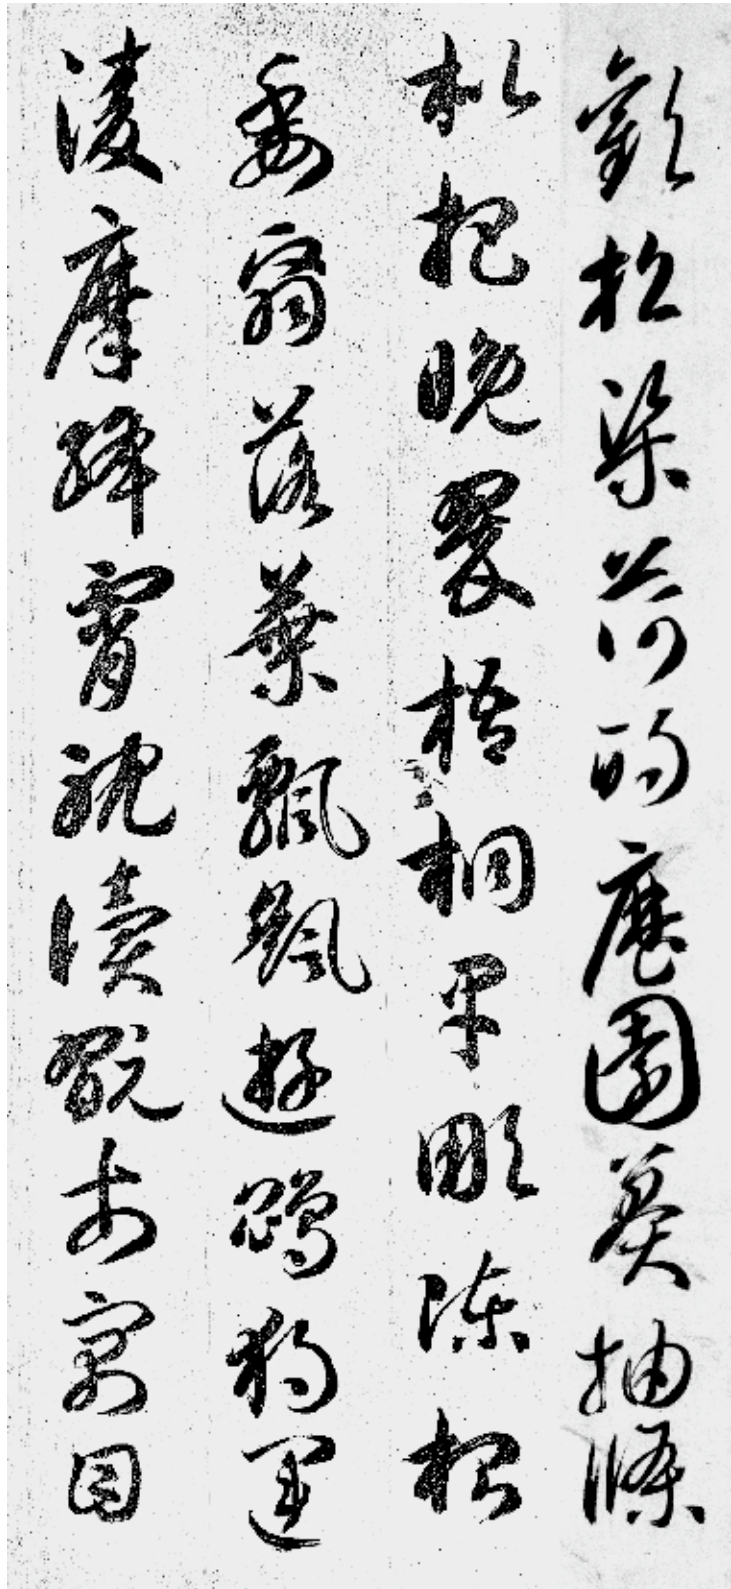 歡招渠荷的歷園莽抽條
枇杷晚翠梧桐早彫陳根
委翳落葉飄颻遊鵾獨運
淩摩絳霄耽讀翫市寓目